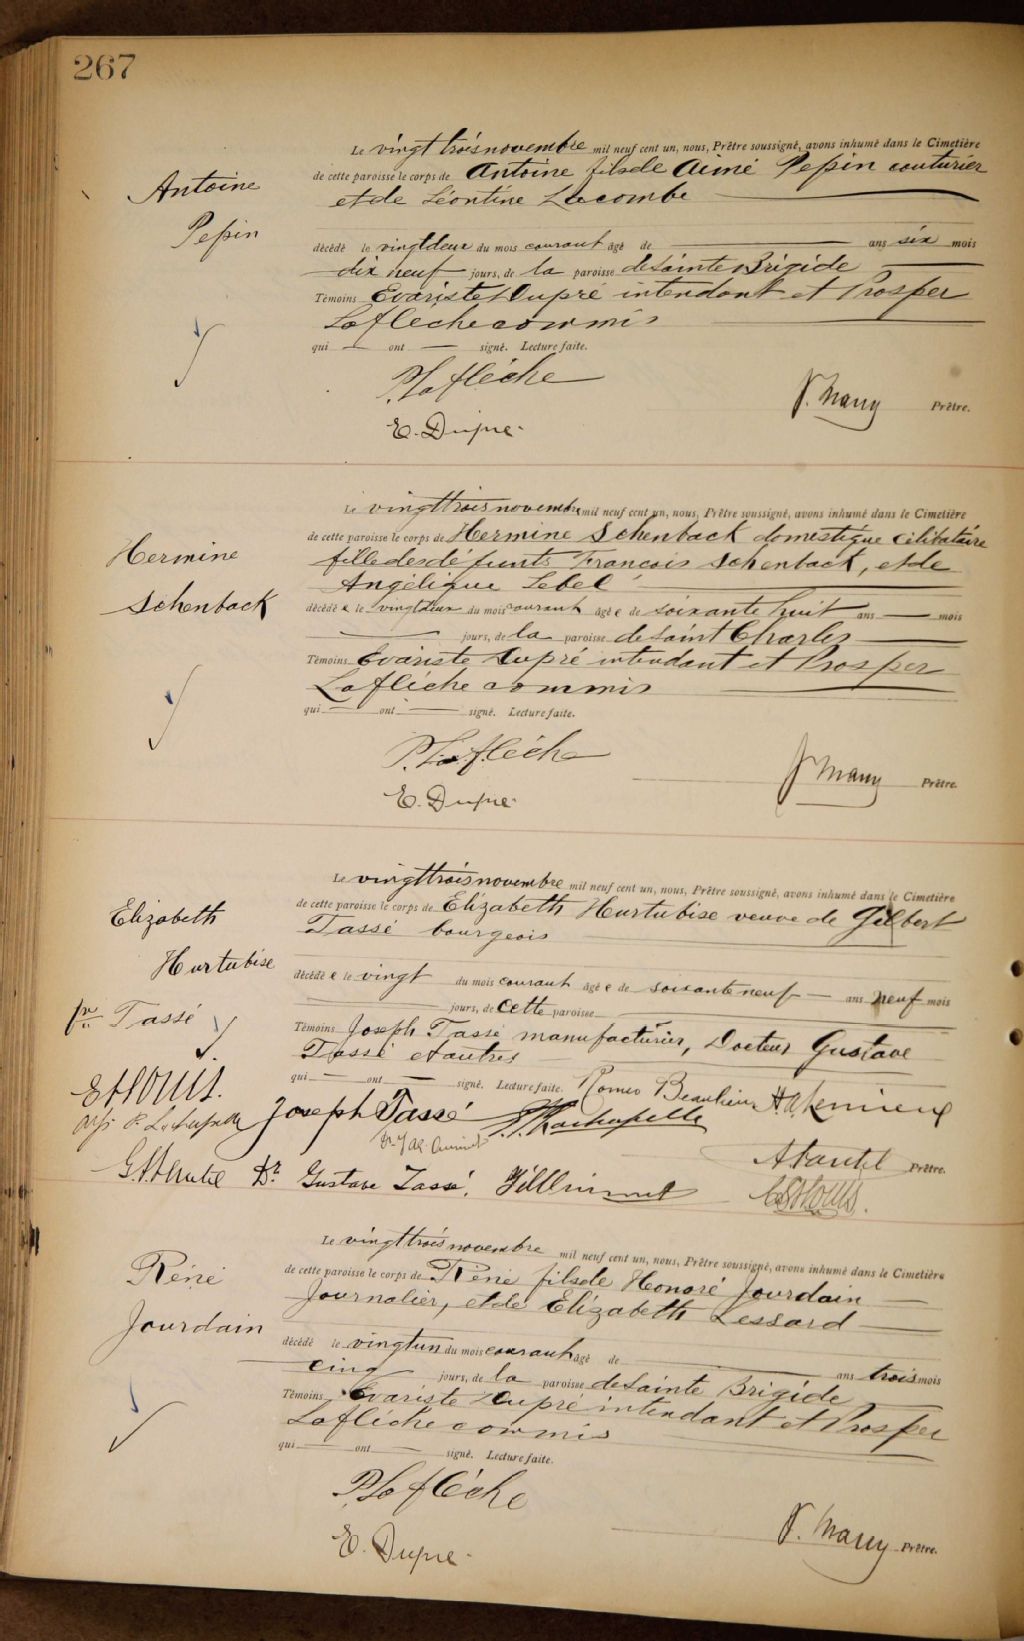 267
Le vingt trois novembre mil neuf cent un, nous, Prêtre soussigné, avons inhumé dans le Cimetière
de cette paroisse le corps de Antoine fils de Aimé Pepin couturier
et de Léontine Lacombe
Antoine
Pepin
décédé le vingt deux du mois courant âgé de ans six mois
dix neuf jours, de la paroisse de Sainte Brigide
Témoins Evariste Dupré intendant et Prosper
Laflèche commis
qui ont signé. Lecture faite.
P. Laflèche
P. Mauy Prêtre.
E. Dupré
Le vingt trois novembre mil neuf cent un, nous, Prêtre soussigné, avons inhumé dans le Cimetière
de cette paroisse le corps de Hermine Schenback domestique célibataire
fille des défunts Francois Schenback, et de
Angélique Lebel
Hermine
Schenback
décédé e le vingt deux du mois courant âgé e de soixante huit ans mois
jours, de la paroisse de Saint Charles
Témoins Evariste Dupré intendant et Prosper
Laflèche commis
qui ont signé. Lecture faite.
P. Laflèche
Prêtre.
E. Dupré
Le vingt trois novembre mil neuf cent un, nous, Prêtre soussigné, avons inhumé dans le Cimetière
de cette paroisse le corps de Elizabeth Hurtubise veuve de Gilbert
Tassé bourgeois
Elizabeth
Hurtubise
Tassé
décédé e le vingt du mois courant âgé e de soixante neuf ans neuf mois
jours, de cette paroisse
Témoins Joseph Tassé manufacturier, Docteur Gustave
Tassé et autres
qui ont signé. Lecture faite. Romeo Beaulieu
Joseph Tassé
Prêtre.
Dr Gustave Tassé.
Le vingt trois novembre mil neuf cent un, nous, Prêtre soussigné, avons inhumé dans le Cimetière
de cette paroisse le corps de Réné fils de Honoré Jourdain
Journalier, et de Elizabeth Lessard
Réné
Jourdain
décédé le vingt un du mois courant âgé de ans trois mois
cinq jours, de la paroisse de Sainte Brigide
Témoins Evariste Dupré intendant et Prosper
Laflèche commis
qui ont signé. Lecture faite.
P. Laflèche
Prêtre.
E. Dupré